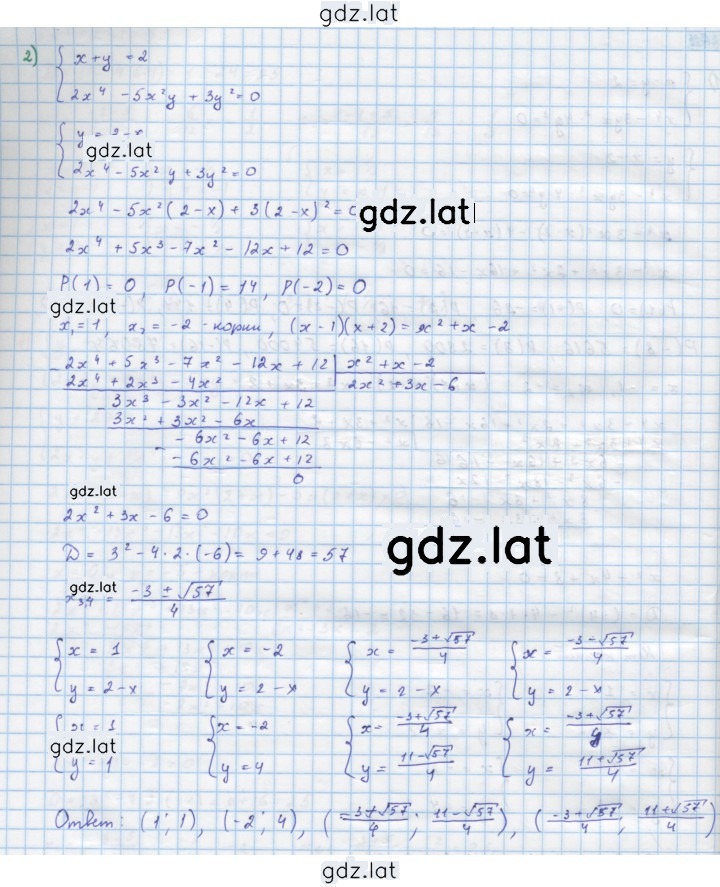 gdz.lat
2) { x+y = 2
2x⁴ - 5x²y + 3y² = 0
{ y = 2-x
gdz.lat
2x⁴ - 5x²y + 3y² = 0
2x⁴ - 5x²(2-x) + 3(2-x)² = 0 gdz.lat
2x⁴ + 5x³ - 7x² - 12x + 12 = 0
P(1) = 0, P(-1) = 14, P(-2) = 0
gdz.lat
x₁=1, x₂ = -2 - корни, (x-1)(x+2) = x² + x - 2
- 2x⁴ + 5x³ - 7x² - 12x + 12 | x² + x - 2
2x⁴ + 2x³ - 4x² | 2x² + 3x - 6
- 3x³ - 3x² - 12x + 12
3x² + 3x² - 6x
- - 6x² - 6x + 12
- 6x² - 6x + 12
0
gdz.lat
2x² + 3x - 6 = 0
D = 3² - 4·2·(-6) = 9 + 48 = 57 gdz.lat
gdz.lat
x₃,₄ = (-3 ± √57)/4
{ x = 1 { x = -2 { x = (-3+√57)/4 { x = (-3-√57)/4
y = 2-x y = 2-x y = 2-x y = 2-x
{ x = 1 { x = -2 { x = (-3+√57)/4 { x = (-3+√57)/4
gdz.lat
y = 1 y = 4 y = (11-√57)/4 y = (11+√57)/4
Ответ: (1; 1), (-2; 4), ((-3+√57)/4; (11-√57)/4), ((-3+√57)/4; (11+√57)/4)
gdz.lat